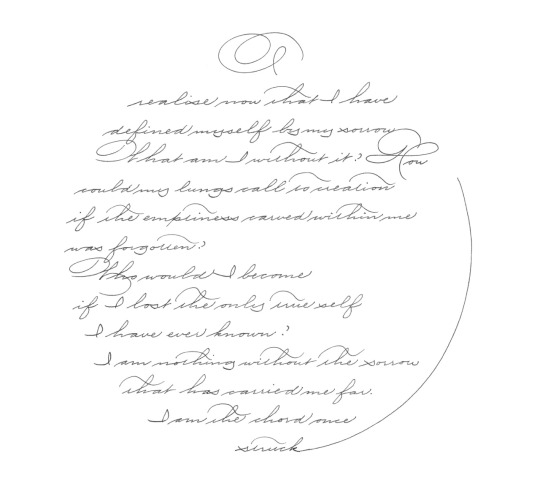 I
realise now that I have
defined myself by my sorrow
What am I without it? How
could my lungs call to creation
if the emptiness carved within me
was forgotten?
Who would I become
if I lost the only true self
I have ever known?
I am nothing without the sorrow
that has carried me far.
I am the chord once
struck